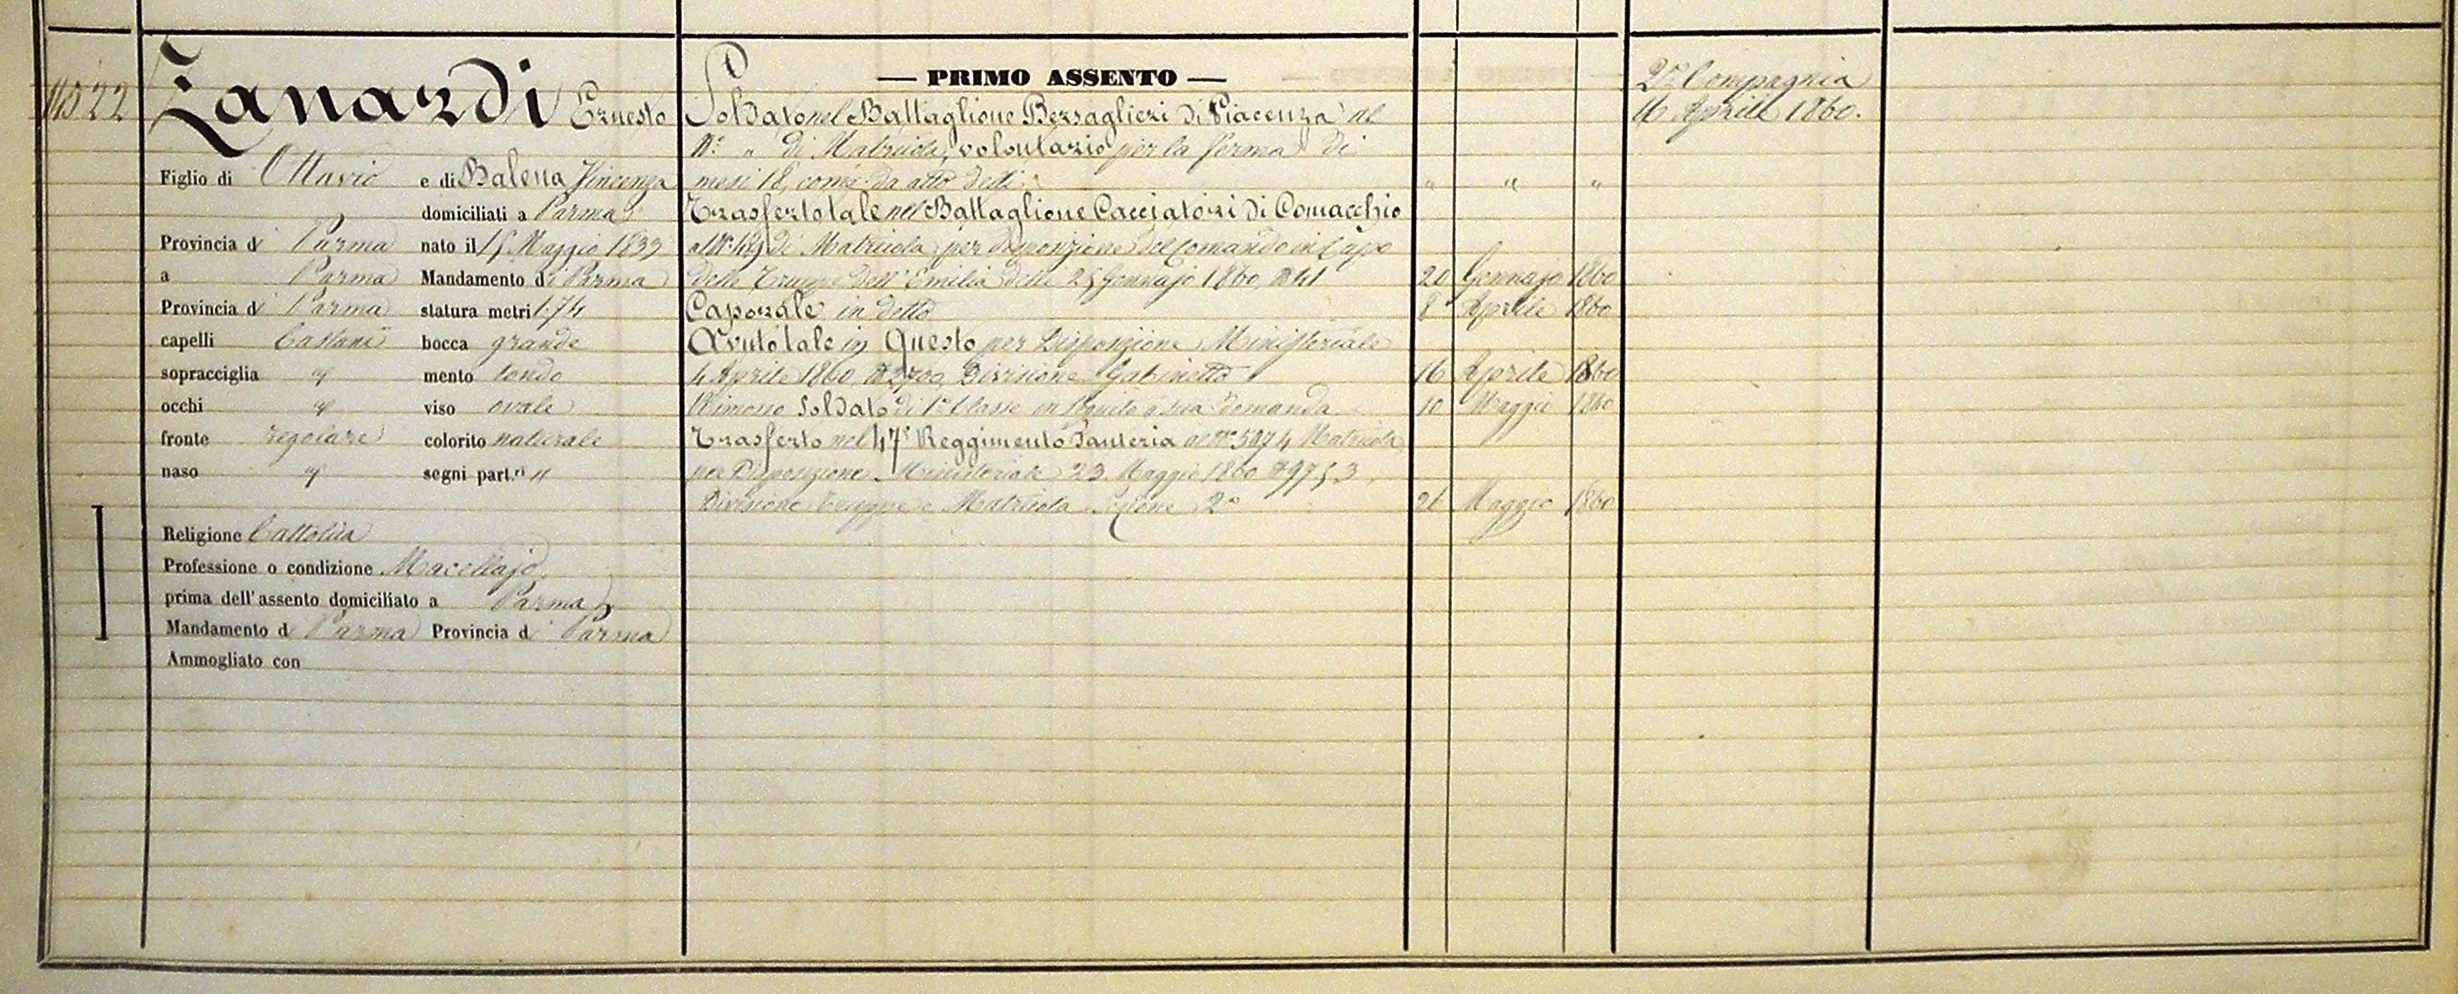 11522
Zanardi Ernesto
Figlio di Ottavio e di Balena Vincenza
domiciliati a Parma
Provincia di Parma nato il 15 Maggio 1839
a Parma Mandamento di Parma
Provincia di Parma statura metri 1.74
capelli Castani bocca grande
sopracciglia " mento tondo
occhi " viso ovale
fronte regolare colorito naturale
naso " segni part.ri "
Religione Cattolica
Professione o condizione Macellajo
prima dell'assento domiciliato a Parma
Mandamento di Parma Provincia di Parma
Ammogliato con
— PRIMO ASSENTO —
Soldato nel Battaglione Bersaglieri di Piacenza al
N.° " di Matricola, volontario per la ferma di
mesi 18, come da atto detti " " "
Trasferto tale nel Battaglione Cacciatori di Comacchio
al N.° di Matricola per disposizione del Comando in Capo
delle Truppe dell'Emilia delli 25 Gennajo 1860, N 41 20 Gennajo 1860
Caporale in detto 8 Aprile 1860
Avuto tale in Questo per Disposizione Ministeriale
4 Aprile 1860 N 2700, Divisione Gabinetto 16 Aprile 1860
Rimosso Soldato di 1a Classe in seguito a sua domanda 10 Maggio 1860
Trasferto nel 47° Reggimento Fanteria al N.° 5974 Matricola
per Disposizione Ministeriale 23 Maggio 1860 N 9753,
Divisione Truppe e Matricola Sezione 2a 26 Maggio 1860
2a Compagnia
16 Aprile 1860.